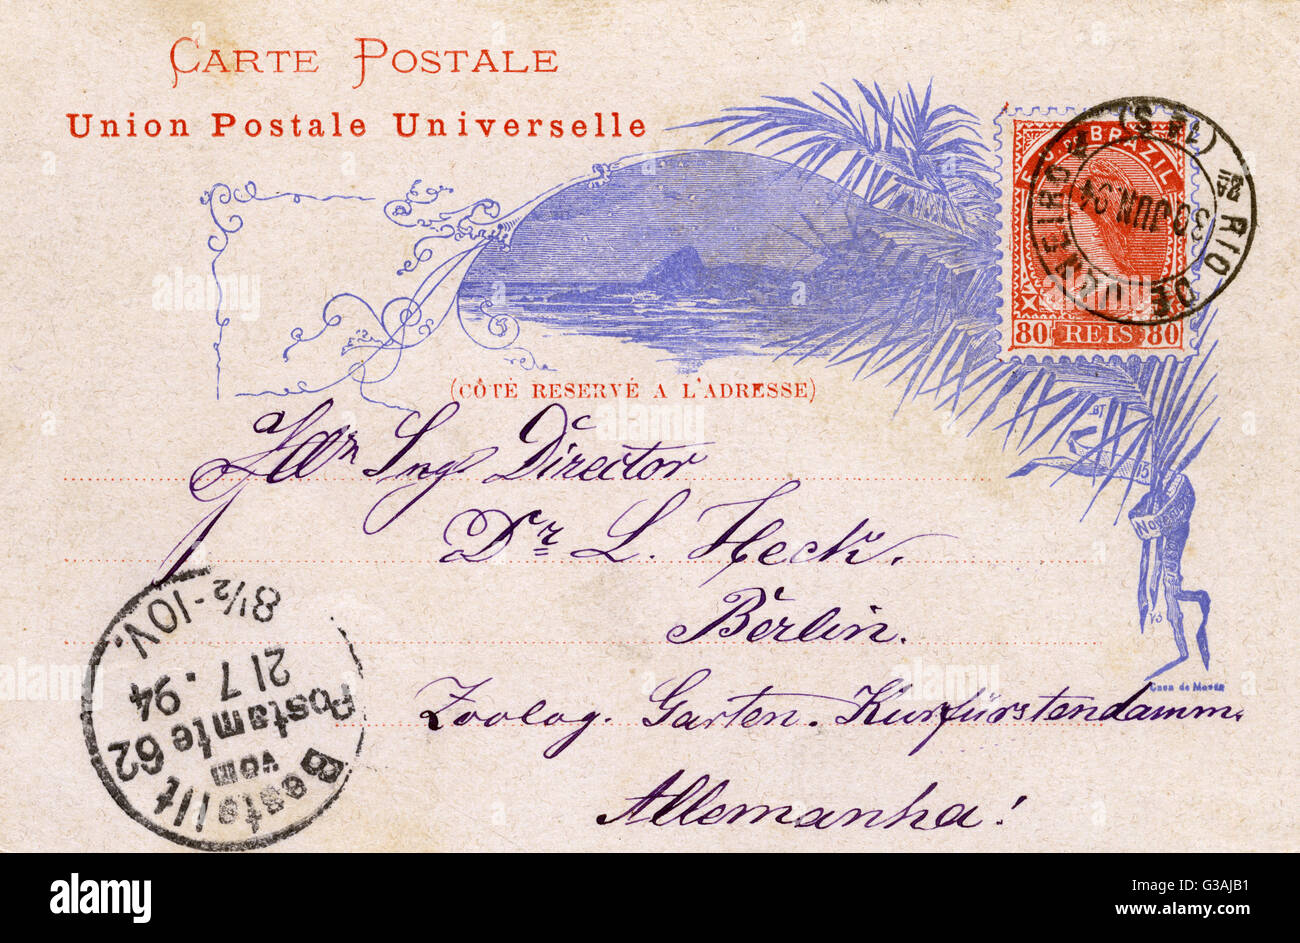 CARTE POSTALE
Union Postale Universelle
E. U. DO BRAZIL
80 REIS 80
RIO DE JANEIRO
(1ª S)
2ª
30 JUN. 94
(CÔTÉ RESERVÉ A L'ADRESSE)
15
Novembro
Casa da Moeda
Ing Director
Dr L. Heck.
Berlin.
Zoolog. Garten. Kurfürstendamm.
Allemanha!
Bestellt
vom
Postamte 62
21 7. 94
8½-10V.
alamy
Image ID: G3AJB1
www.alamy.com